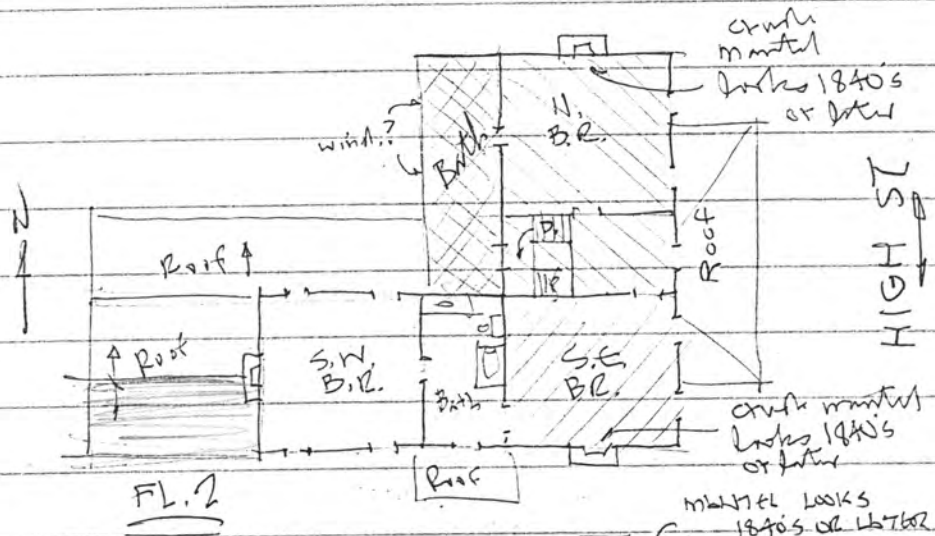 crude
mantel
looks 1840's
or later
N.
B.R.
wind.?
Bath
N
HIGH ST
Roof
Dn
Roof
up
Roof
S.W.
B.R.
S.E.
B.R.
Bath
crude mantel
looks 1840's
or later
Roof
FL. 2
MANTEL LOOKS
1840'S OR LATER